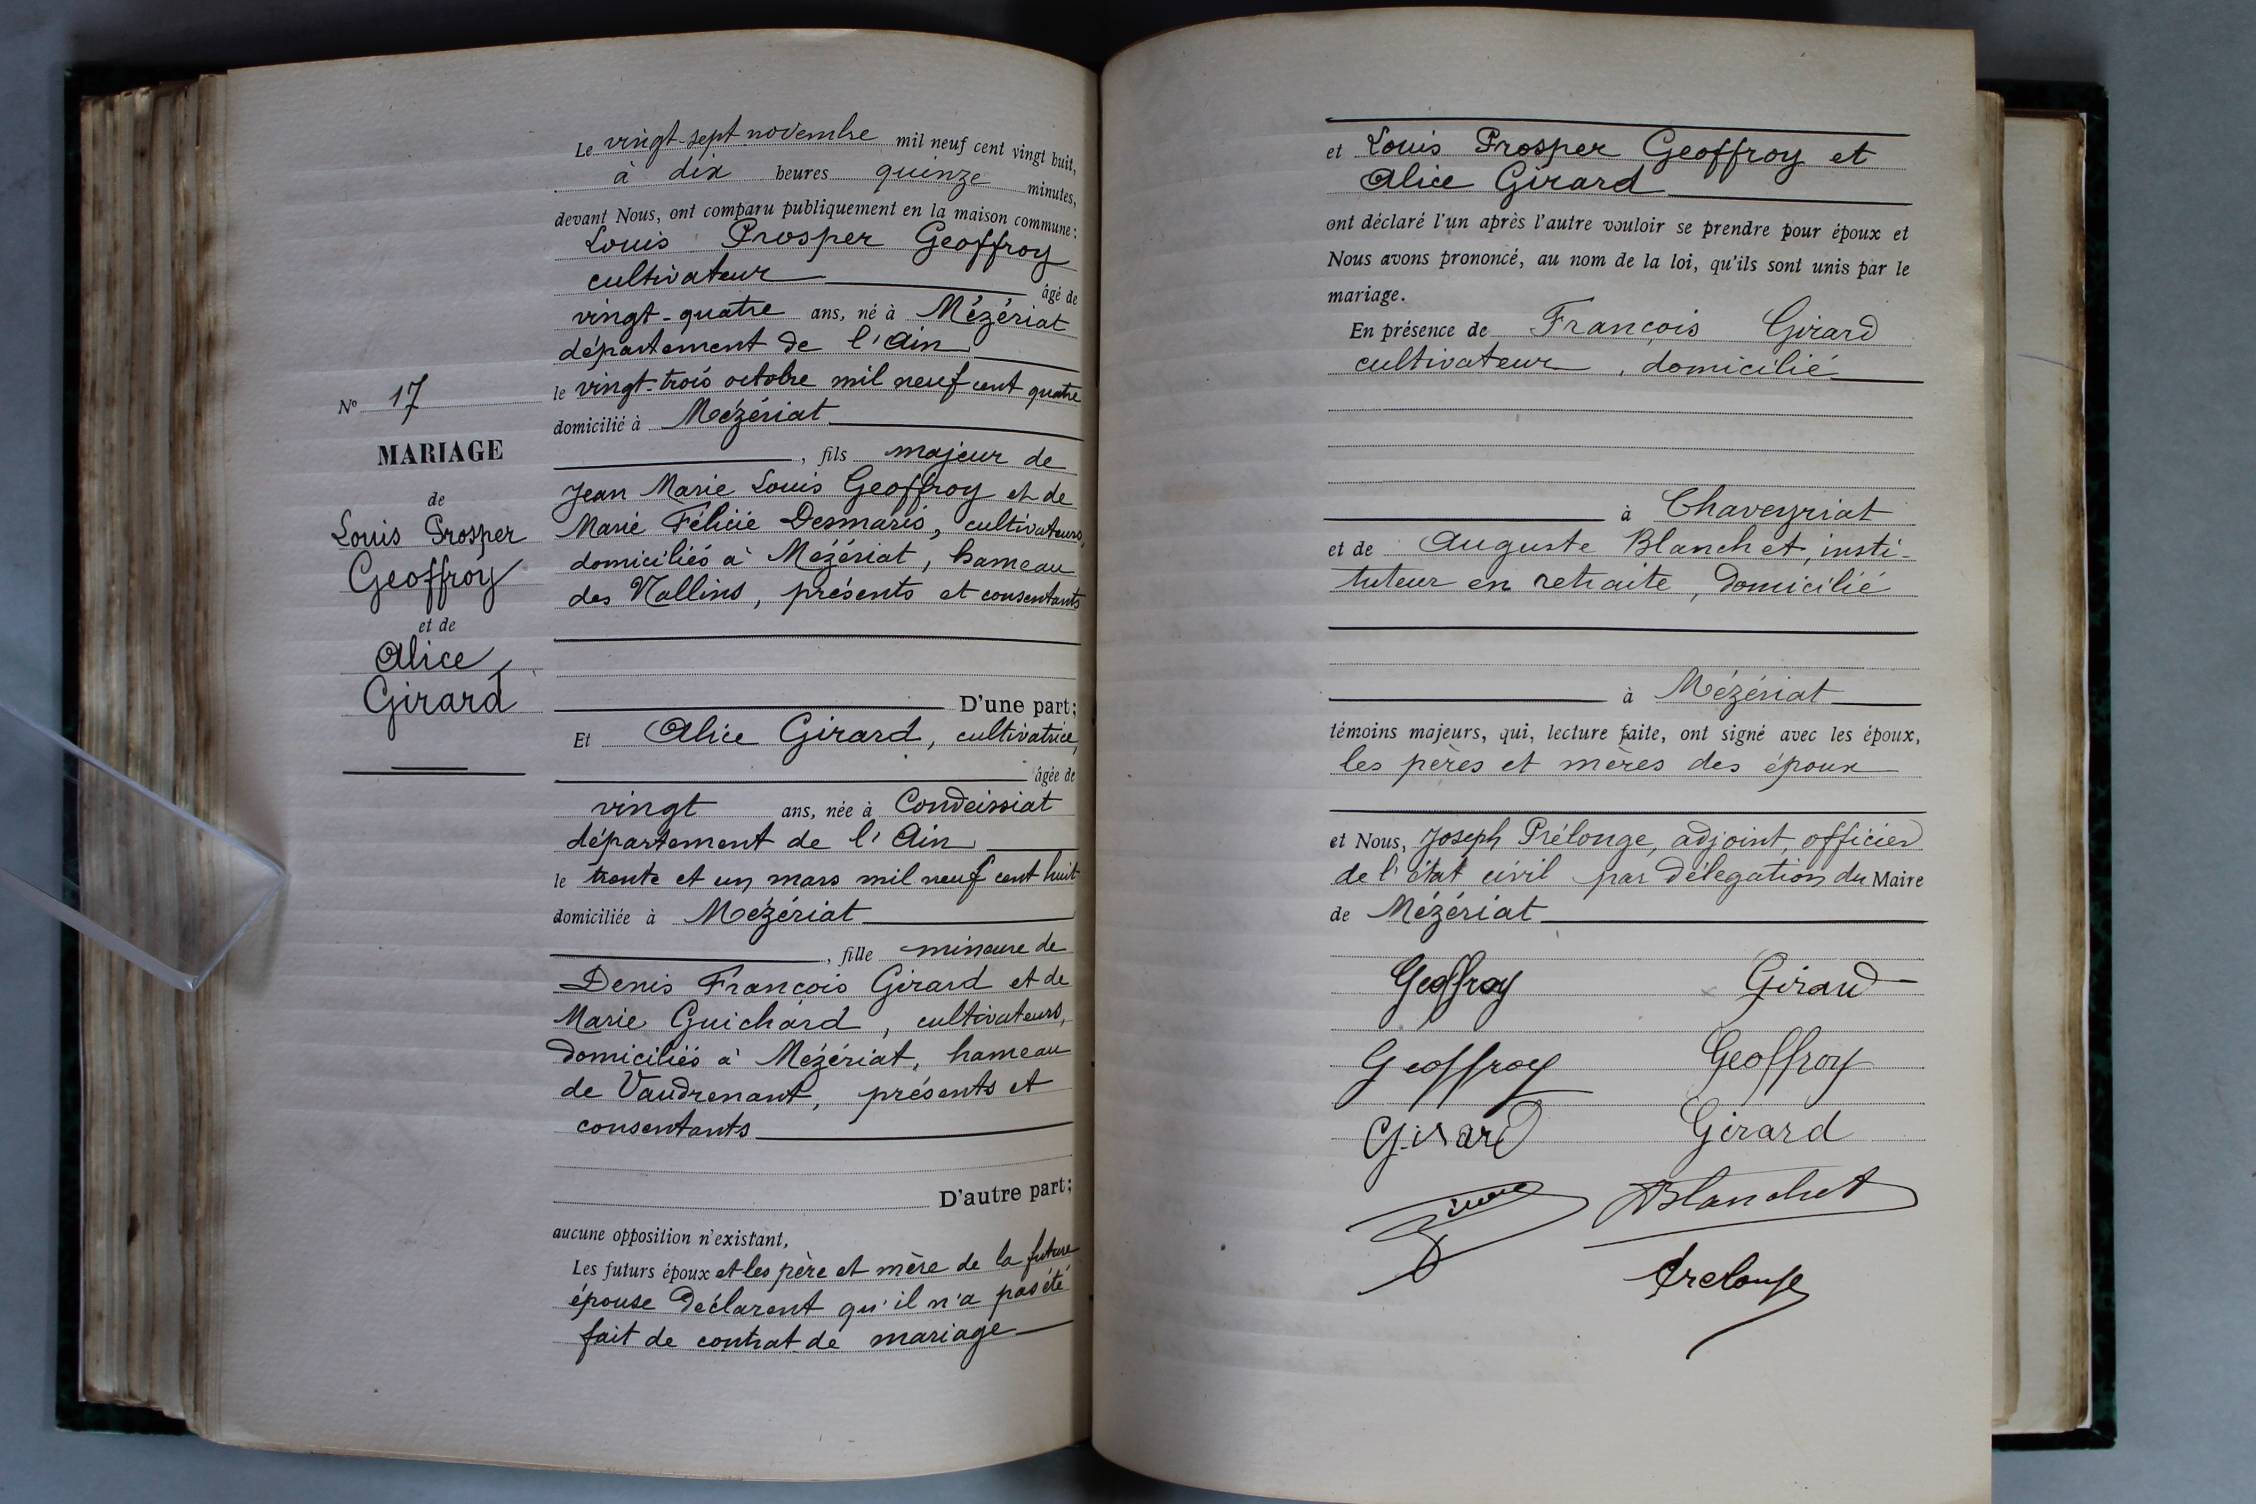 N° 17
MARIAGE
de
Louis Prosper
Geoffroy
et de
Alice
Girard
Le vingt-sept novembre mil neuf cent vingt huit,
à dix heures quinze minutes,
devant Nous, ont comparu publiquement en la maison commune:
Louis Prosper Geoffroy
cultivateur âgé de
vingt-quatre ans, né à Mézériat
département de l'Ain
le vingt-trois octobre mil neuf cent quatre
domicilié à Mézériat
, fils majeur de
Jean Marie Louis Geoffroy et de
Marie Félicie Desmaris, cultivateurs,
domiciliés à Mézériat, hameau
des Nallins, présents et consentants
D'une part;
Et Alice Girard, cultivatrice,
âgée de
vingt ans, née à Condeissiat
département de l'Ain
le trente et un mars mil neuf cent huit
domiciliée à Mézériat
, fille mineure de
Denis François Girard et de
Marie Guichard, cultivateurs,
domiciliés à Mézériat, hameau
de Vaudrenant, présents et
consentants
D'autre part;
aucune opposition n'existant,
Les futurs époux et les père et mère de la future
épouse déclarent qu'il n'a pas été
fait de contrat de mariage
et Louis Prosper Geoffroy et
Alice Girard
ont déclaré l'un après l'autre vouloir se prendre pour époux et
Nous avons prononcé, au nom de la loi, qu'ils sont unis par le
mariage.
En présence de François Girard
cultivateur, domicilié
à Chaveyriat
et de Auguste Blanchet, insti-
tuteur en retraite, domicilié
à Mézériat
témoins majeurs, qui, lecture faite, ont signé avec les époux,
les pères et mères des époux
et Nous, Joseph Prélonge, adjoint, officier
de l'état civil par délégation du Maire
de Mézériat
Geoffroy Girard
Geoffroy Geoffroy
Girard Girard
ABlanchet
Prelonge